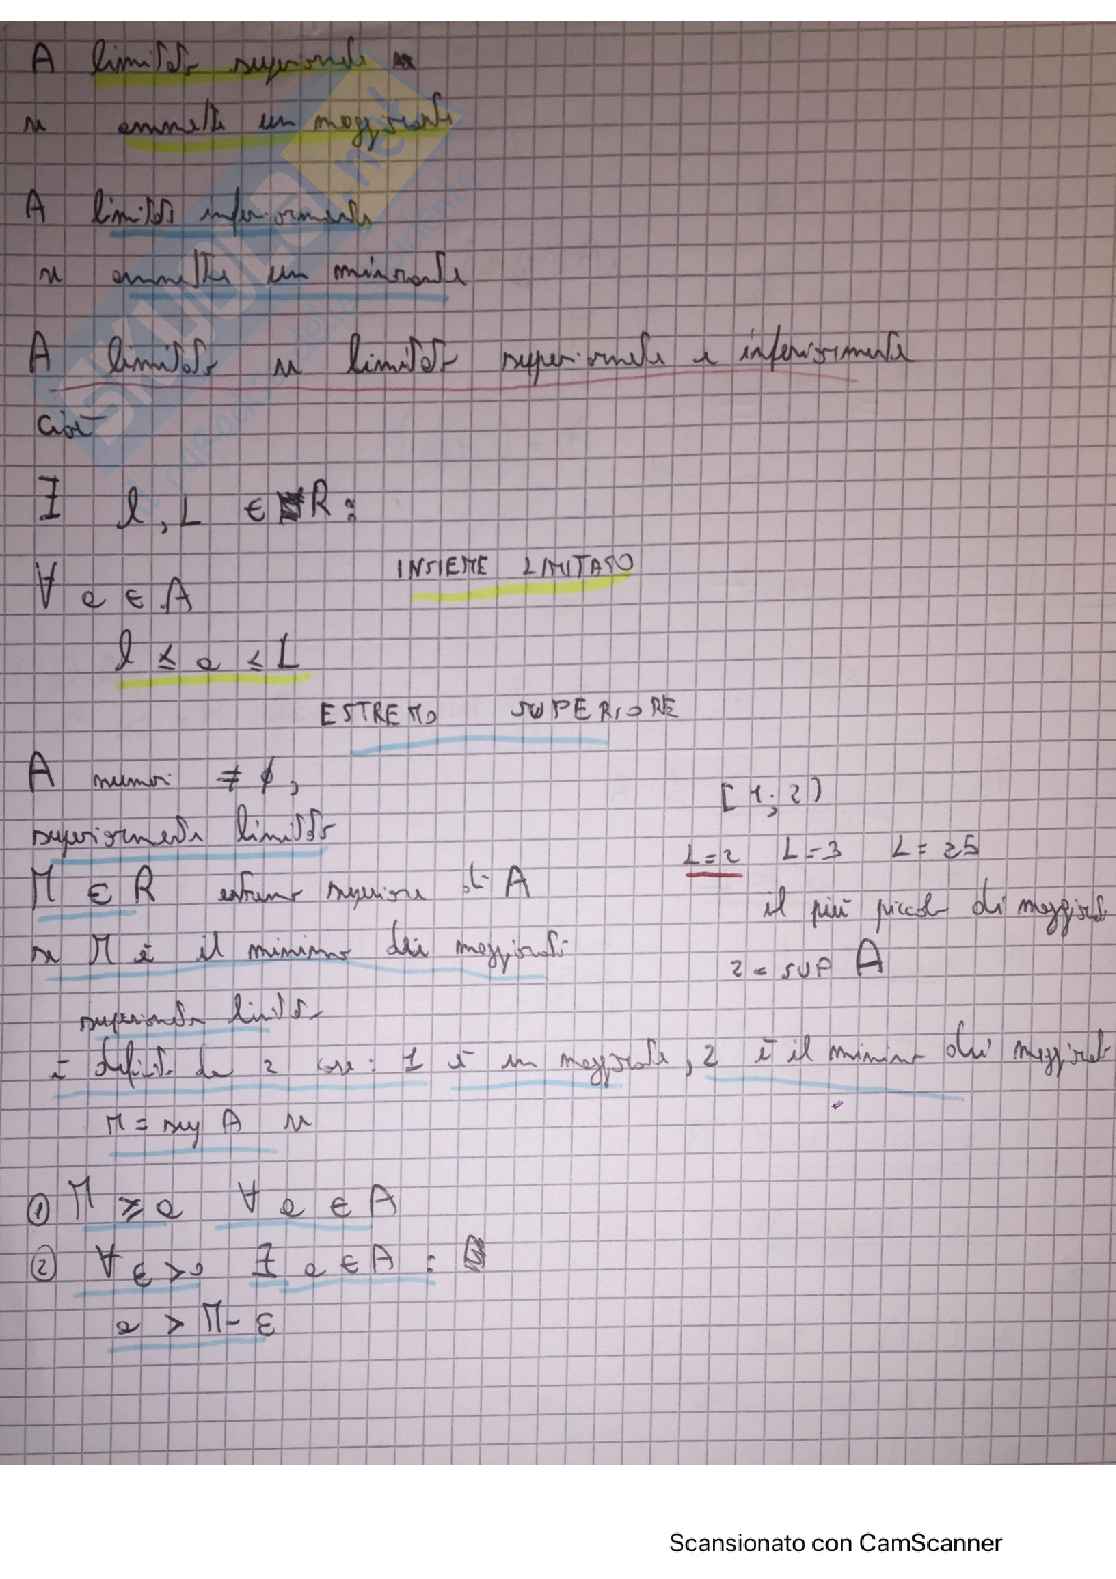 A limitato superiormente
se ammette un maggiorante
A limitato inferiormente
se ammette un minorante
A limitato se limitato superiormente e inferiormente
cioè
∃ l, L ∈ R :
INSIEME LIMITATO
∀ a ∈ A
l ≤ a ≤ L
ESTREMO SUPERIORE
A numeri ≠ ∅,
superiormente limitato
M ∈ R estremo superiore di A
se M è il minimo dei maggioranti
[1; 2)
L=2 L=3 L=25
il più piccolo di maggioranti
2 = SUP A
superiormente limitato
è definito da 2 cose: 1 è un maggiorante, 2 è il minimo dei maggioranti
M = sup A se
① M ≥ a ∀ a ∈ A
② ∀ ε > 0 ∃ a ∈ A :
a > M - ε
SKUOLA.net
Scansionato con CamScanner